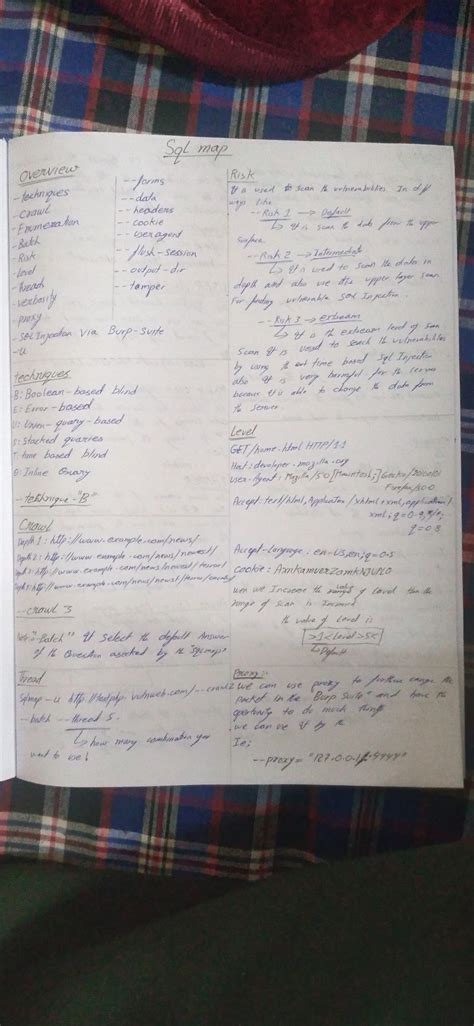 Sql map
Overview
- techniques
- Crawl
- Enumeration
- Batch
- Risk
- Level
- threads
- verbosity
- proxy
- SQL Injection via Burp-Suite
- u
--forms
--data
--headers
--cookie
--useragent
--flush-session
--output-dir
--tamper
techniques
B: Boolean-based blind
E: Error-based
U: Union-query-based
S: Stacked quaries
T: time based blind
Q: Inline Query
--technique-"B"
Crawl
Depth 1: http://www.example.com/news/
http://www.example.com/news/newest/
http://www.example.com/news/newest/
http://www.example.com/news/newest/
--crawl 3
Note:-Batch" It Select the default Answer
of the Question by the Sqlmap
Thread
Sqlmap -u --crawl 2
--batch --thread 5.
how many combination you
want to use!
Risk
It is used to scan the vulnerabilities In diff
ways like
--Risk 1 → Default
It is scan the data from the upper
surface.
--Risk 2 → Intermediate
It is used to scan the data in
depth and also use the upper layer scan.
For finding vulnerable SQL Injection.
--Risk 3 → extream
It is the extream level of scan
Scan it is used to seach the vulnerabilities
by using the time based Sql Injection
also it is very harmful for the server
because it is able to change the data from
the server.
Level
GET/home.html HTTP/1.1
Host: developer-mozilla-org
User-Agent: [Macintosh;]
Accept: text/html,
xml;
Accept-language: en-US,en;q=0.5
Cookie:
wen we Increase the value of Level then the
range of scan is Increase
the value of Level is
>1<level>5<
Default
Proxy:-
We can use proxy to further
packet in the "Burp Suite" and have the
to do much things
we can use it by the
Ie;
--proxy="127.0.0.1